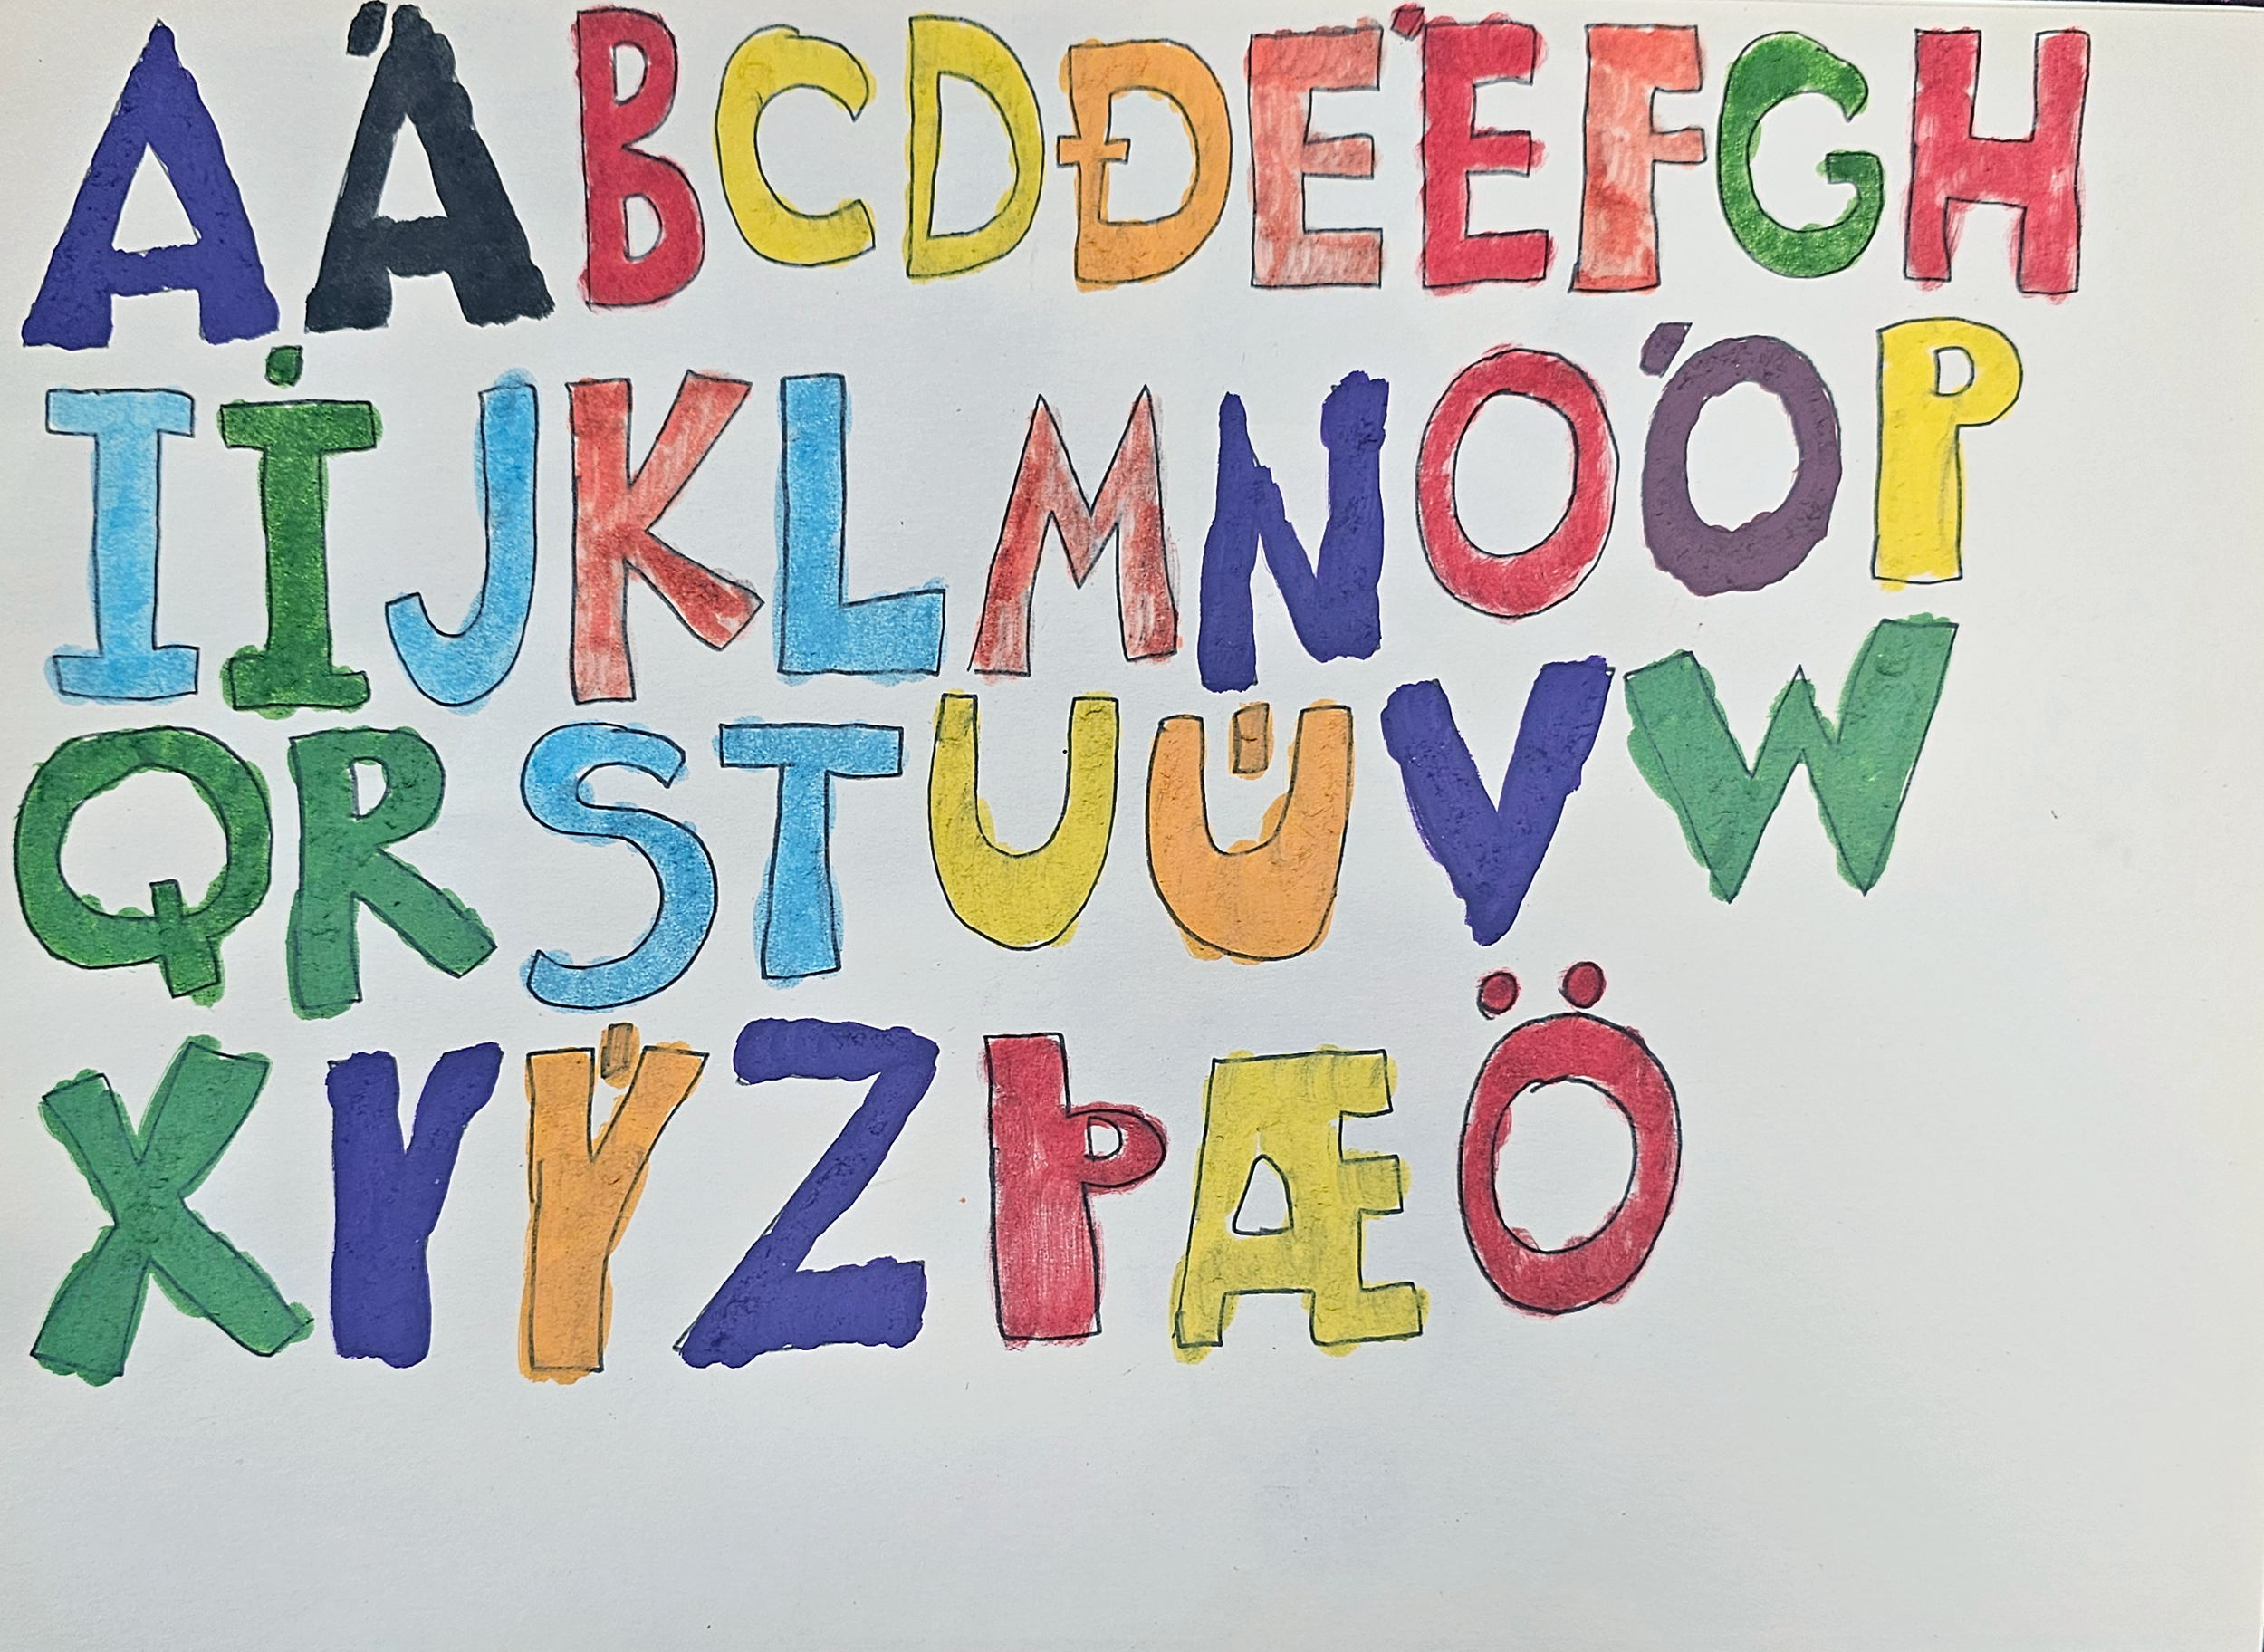 A Á B C D Ð E É F G H
I Í J K L M N O Ó P
Q R S T U Ú V W
X Y Ý Z Þ Æ Ö